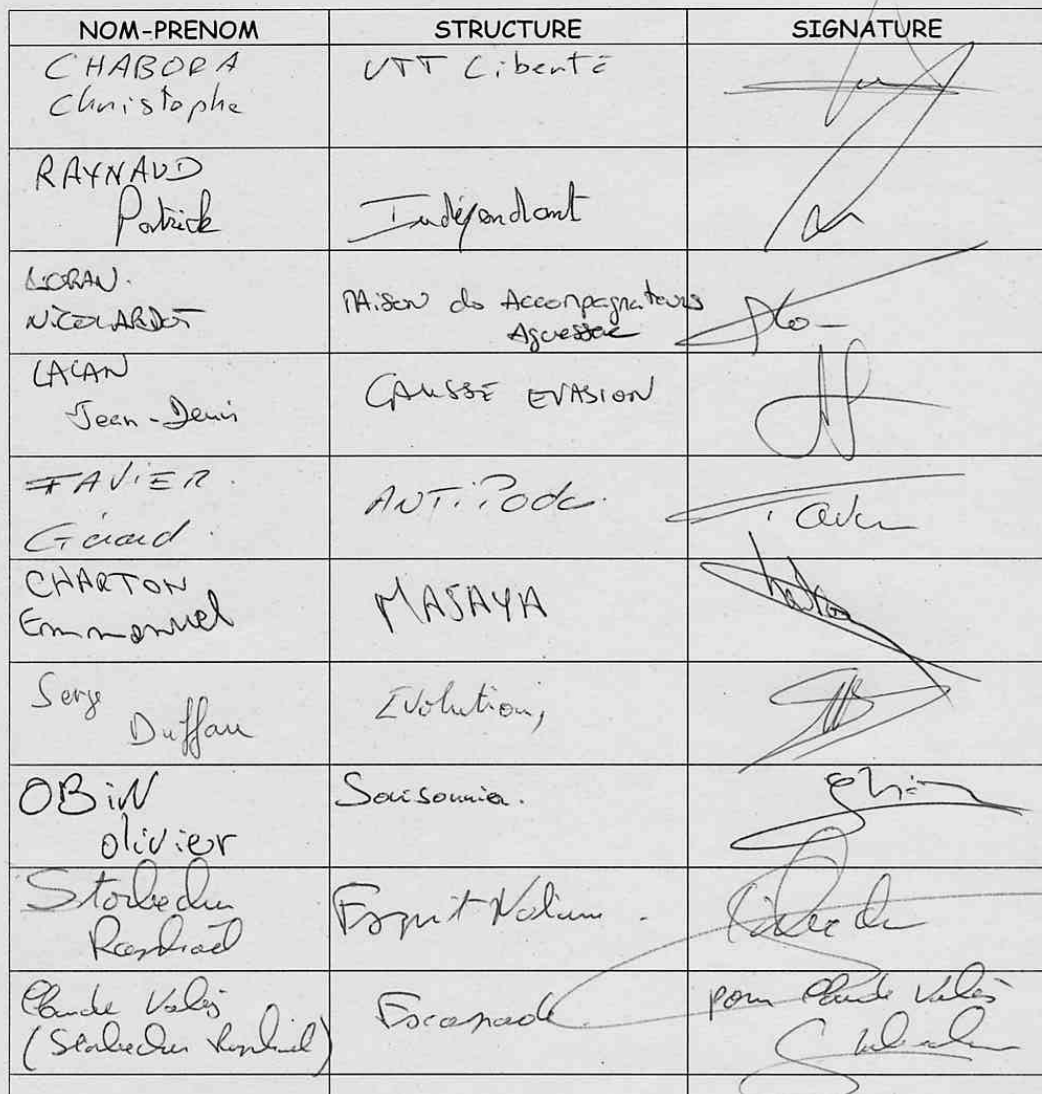 NOM-PRENOM STRUCTURE SIGNATURE
CHABORA VTT Liberté
Christophe
RAYNAUD
Patrick Indépendant
LORAN.
NICOLARDOT Maison des Accompagnateurs
Aguessac
LACAN
Jean-Denis CAUSSE EVASION
FAVIER.
Gérard. ANTiPode.
CHARTON
Emmanuel MASAYA
Serge
Duffau Evolution,
OBiN
olivier Saisonnier.
Raphaël Esprit Nature.
Claude Valès Escapade pour Claude Valès